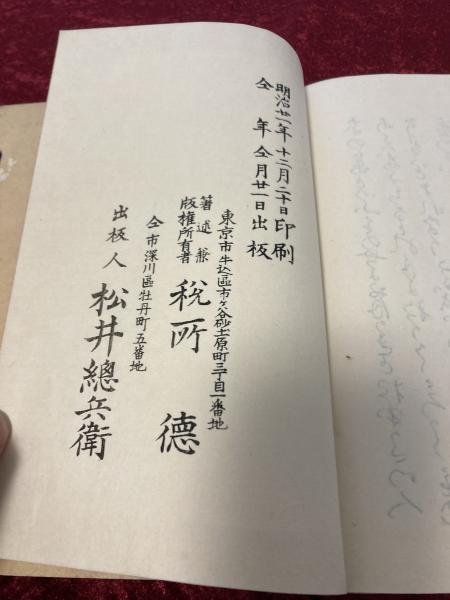 明治廿一年十二月二十日印刷
仝年仝月廿一日出板
東京市牛込區市ヶ谷砂土原町三丁目一番地
著述兼
版権所有者
税所 德
仝市深川區牡丹町五番地
出板人 松井總兵衛